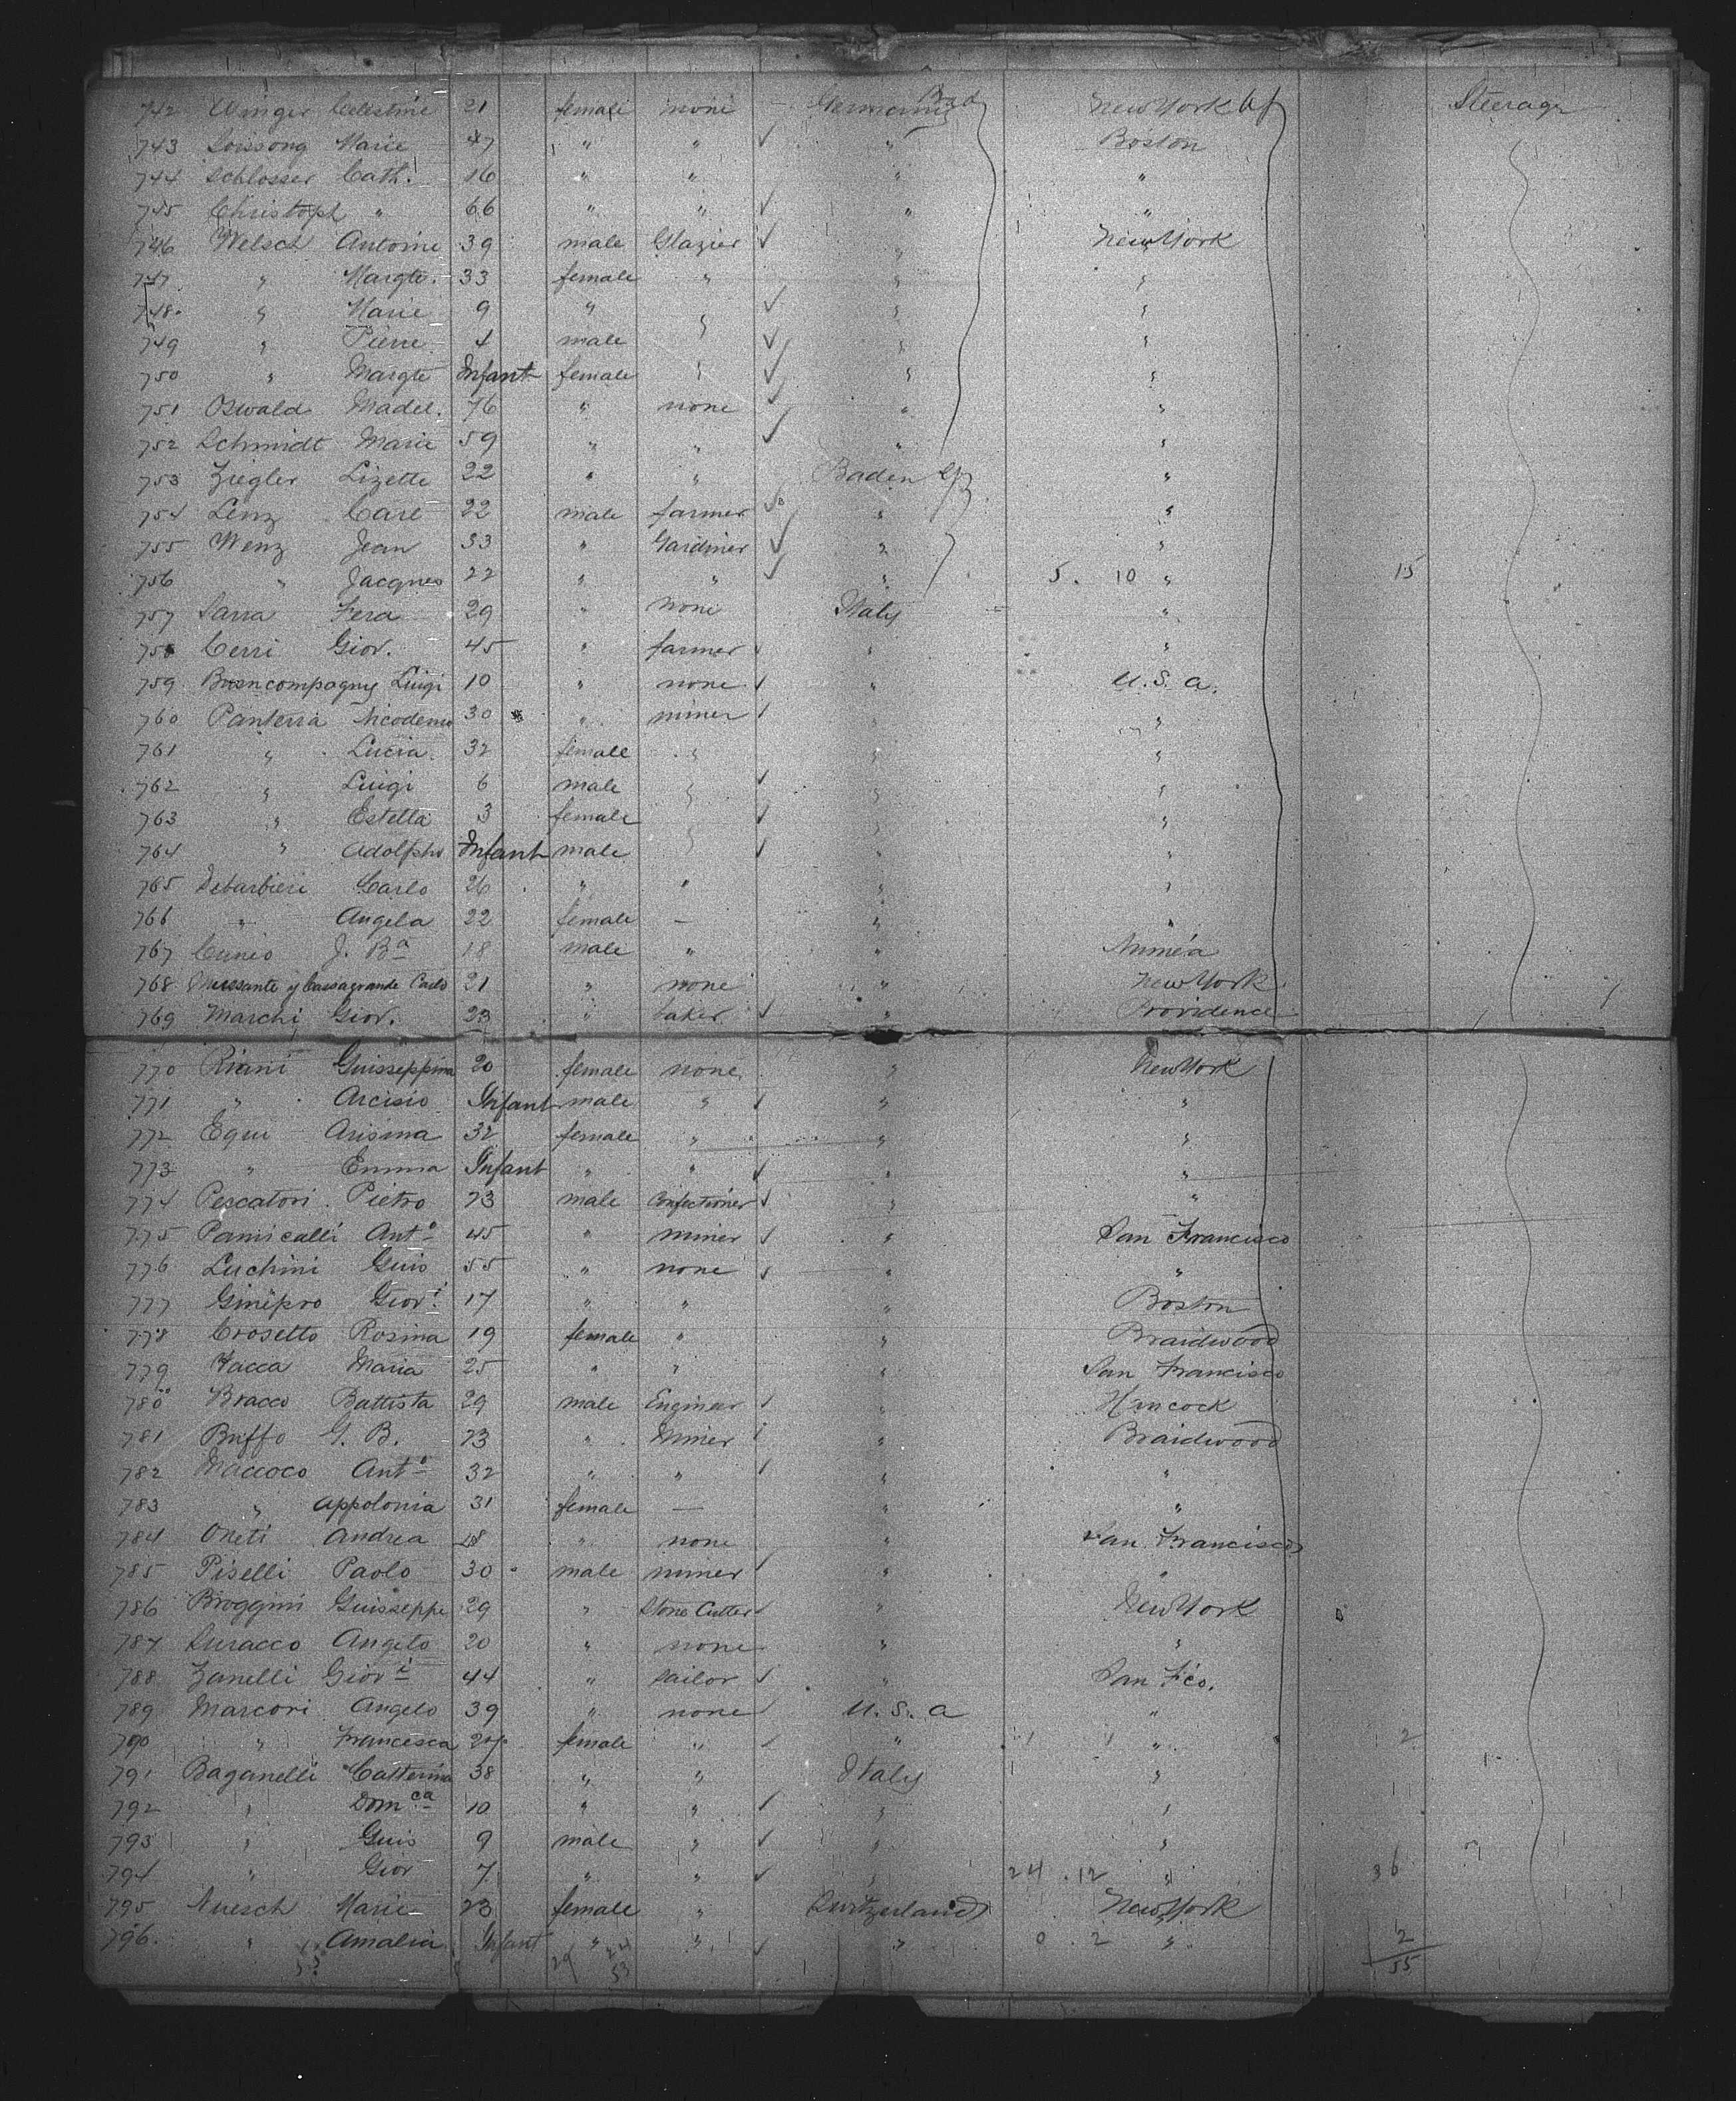 742 Winger Celestine 21 female none — Germany Bad New York Steerage
743 Loissong Marie 47 " " ✓ " Boston
744 Schlosser Cath. 16 " " " "
745 Christoph " 66 " " ✓ " "
746 Welsch Antoine 39 male Glazier ✓ " New York
747 " Margte. 33 female " " "
748 " Marie 9 " " ✓ " "
749 " Pierre 4 male ✓ " "
750 " Margte Infant female " ✓ " "
751 Oswald Madel. 76 " none ✓ " "
752 Schmidt Marie 59 " " ✓ " "
753 Ziegler Lizette 22 " " Baden "
754 Lenz Carl 22 male farmer ✓ " "
755 Wenz Jean 33 " Gardiner ✓ " "
756 " Jacques 22 " " ✓ " 5. 10 " 15
757 Sarra Fera 29 " none Italy "
758 Cerri Gior. 45 " farmer ✓ " "
759 Buoncompagny Luigi 10 " none ✓ " U.S.a.
760 Panterra Nicodemo 30 " miner ✓ " "
761 " Lucia. 32 female " " "
762 " Luigi 6 male " ✓ " "
763 " Estella 3 female ✓ " "
764 " Adolpho Infant male " ✓ " "
765 Debarbieri Carlo 26 " " " "
766 " Angela 22 female — " "
767 Cuneo J. Ba 18 male " "
768 y Casagrande Carlo 21 " none " New York
769 Marchi Gior. 23 " baker ✓ " Providence
770 Riani Guisseppina 20 female none " New York
771 " Arcisio Infant male " ✓ " "
772 Equi Arisma 32 female " " "
773 " Emma Infant " " ✓ " "
774 Pescatori Pietro 73 male Confectioner ✓ " "
775 Pamicalli Anto 45 " miner ✓ " San Francisco
776 Luchini Guis 55 " none ✓ " "
777 Ginepro Giovi 17 " " " Boston
778 Crosetto Rosina 19 female " " Braidwood
779 Vacca Maria 25 " " " San Francisco
780 Bracco Battista 29 male Engineer ✓ " Hancock
781 Buffo G. B. 23 " Miner ✓ " Braidwood
782 Maccoco Anto 32 " " ✓ " "
783 " Appolonia 31 female — " "
784 Oneti Andrea 48 " none " San Francisco
785 Piselli Paolo 30 male miner ✓ " "
786 Broggini Guisseppe 29 " Stone Cutter ✓ " New York
787 Luracco Angelo 20 " none " "
788 Zanelli Giovi 44 " sailor ✓ " San Fco.
789 Marcori Angelo 39 " none ✓ U.S.a "
790 " Francesca 24 female " ✓ " 1 1 " 2
791 Baganelli Catterina 38 " " Italy "
792 " Domca 10 " " ✓ " "
793 " Guis 9 male " ✓ " "
794 " Gior 7 " " ✓ " 24 . 12 " 36
795 Nuesch Marie 23 female " Switzerland New York
796. " Amalia Infant " " ✓ " 0 . 2 " 2
55